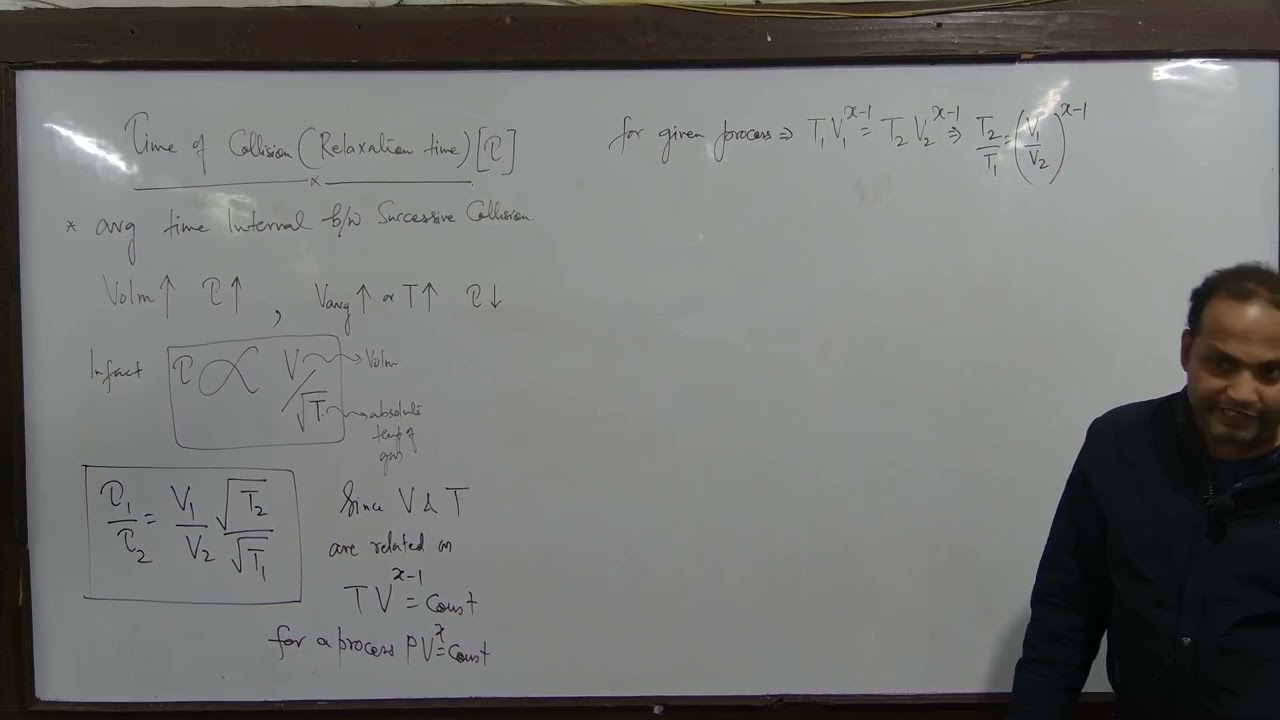 Time of Collision (Relaxation time) [τ]
* avg time Internal b/w Successive Collision.
Volm ↑ τ ↑ , Vavg ↑ or T ↑ τ ↓
Infact τ ∝ V/√T
Volm
absolute
temp of
gas
τ₁/τ₂ = V₁/V₂ √T₂/√T₁
Since V & T
are related as
TV^(x-1) = Const
for a process PV^x = Const
for given process ⇒ T₁V₁^(x-1) = T₂V₂^(x-1) ⇒ T₂/T₁ = (V₁/V₂)^(x-1)